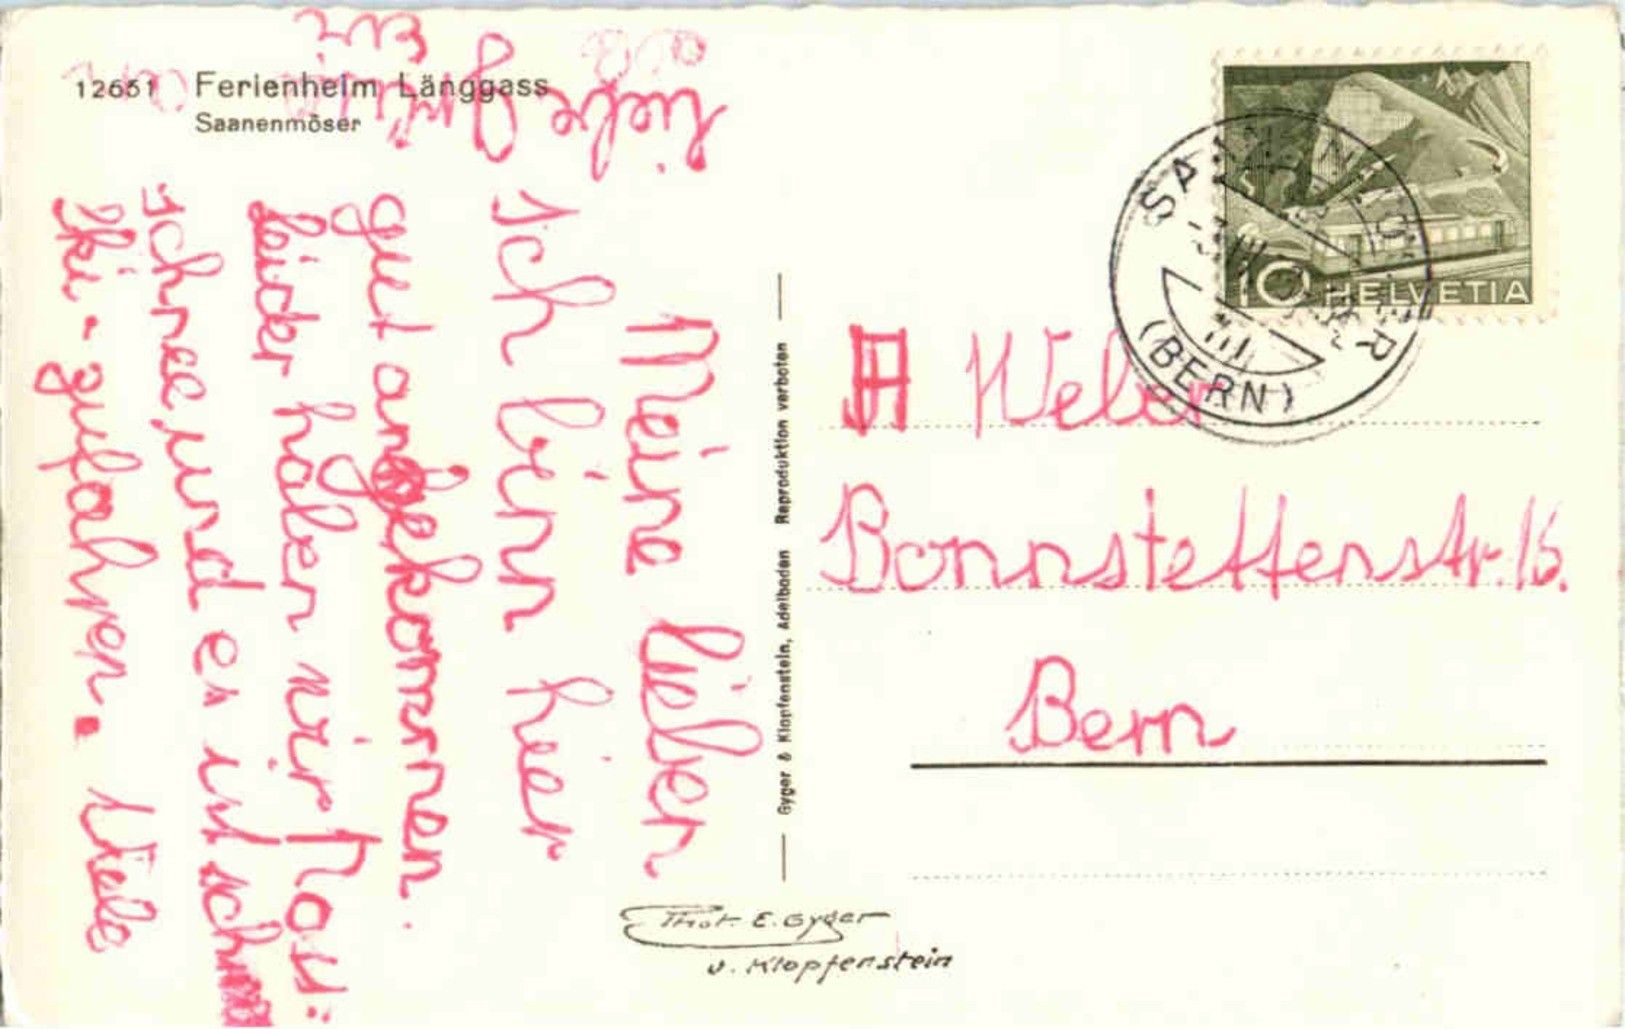 12651 Ferienheim Länggass
Saanenmöser
Meine lieben
Ich bin hier
gut angekommen.
leider haben wir Nass-
schnee, und es ist schwer
Ski-gufahren. Viele
liebe Grü
HELVETIA
10
SAANENMÖSER
(BERN)
H Weber
Bonnstettenstr. 16.
Bern
Gyger & Klopfenstein, Adelboden Reproduktion verboten
Phot. E. Gyger
u. Klopfenstein